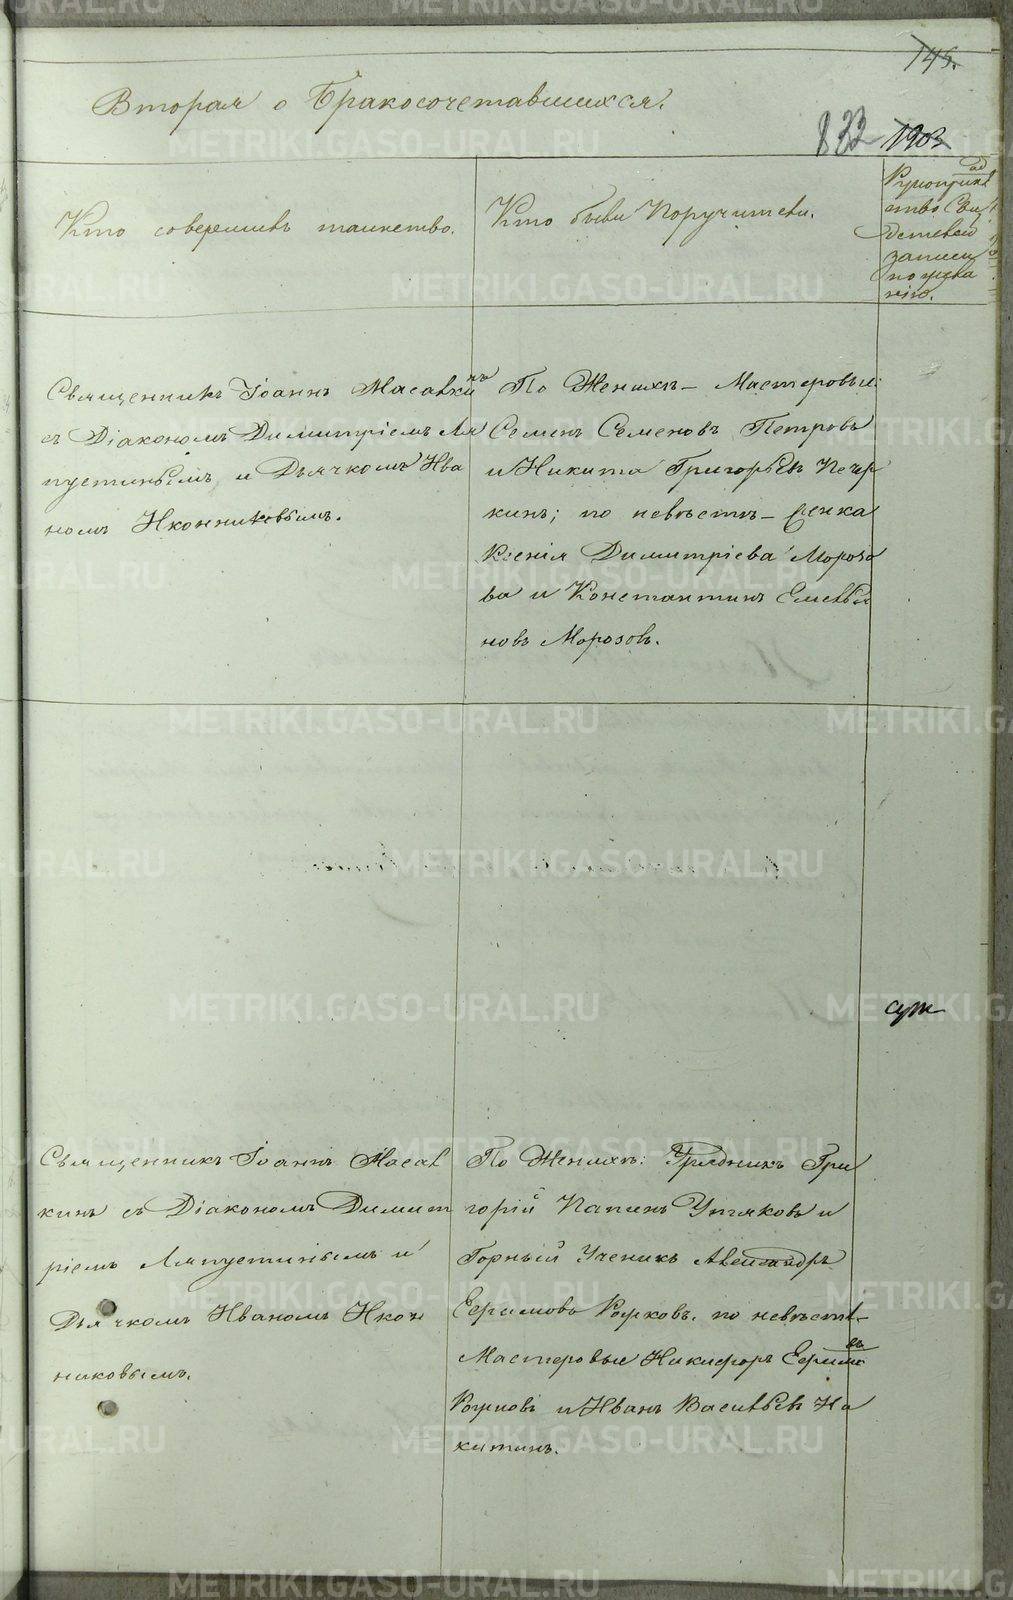 145.
Вторая о Бракосочетавшихся.
822 1903
Кто совершилъ таинство.
Кто были Поручители.
Рукоприкл
ство Сви
детелей
записи
по жела
нію.
Священникъ Іоаннъ Насавкинъ
съ Діакономъ Димитріемъ Ля
пустинымъ и Дьячкомъ Ива
номъ Иконниковымъ.
По Женихѣ – Мастеровые:
Семенъ Семеновъ Петровъ
и Никита Григорьевъ Печер
кинъ; по невѣстѣ – Женка
Ксенія Димитріева Морозо
ва и Константинъ Емелья
новъ Морозовъ.
Священникъ Іоаннъ Насав
кинъ съ Діакономъ Димит
ріемъ Ляпустинымъ и
Дьячкомъ Иваномъ Икон
никовымъ.
По Женихѣ: Урядникъ Гри
горій Папинъ и
Горный Ученикъ Александръ
Ефимовъ по невѣстѣ –
Мастеровые Никифоръ Ефимовъ
и Иванъ Васильевъ Ни
китинъ.
METRIKI.GASO-URAL.RU